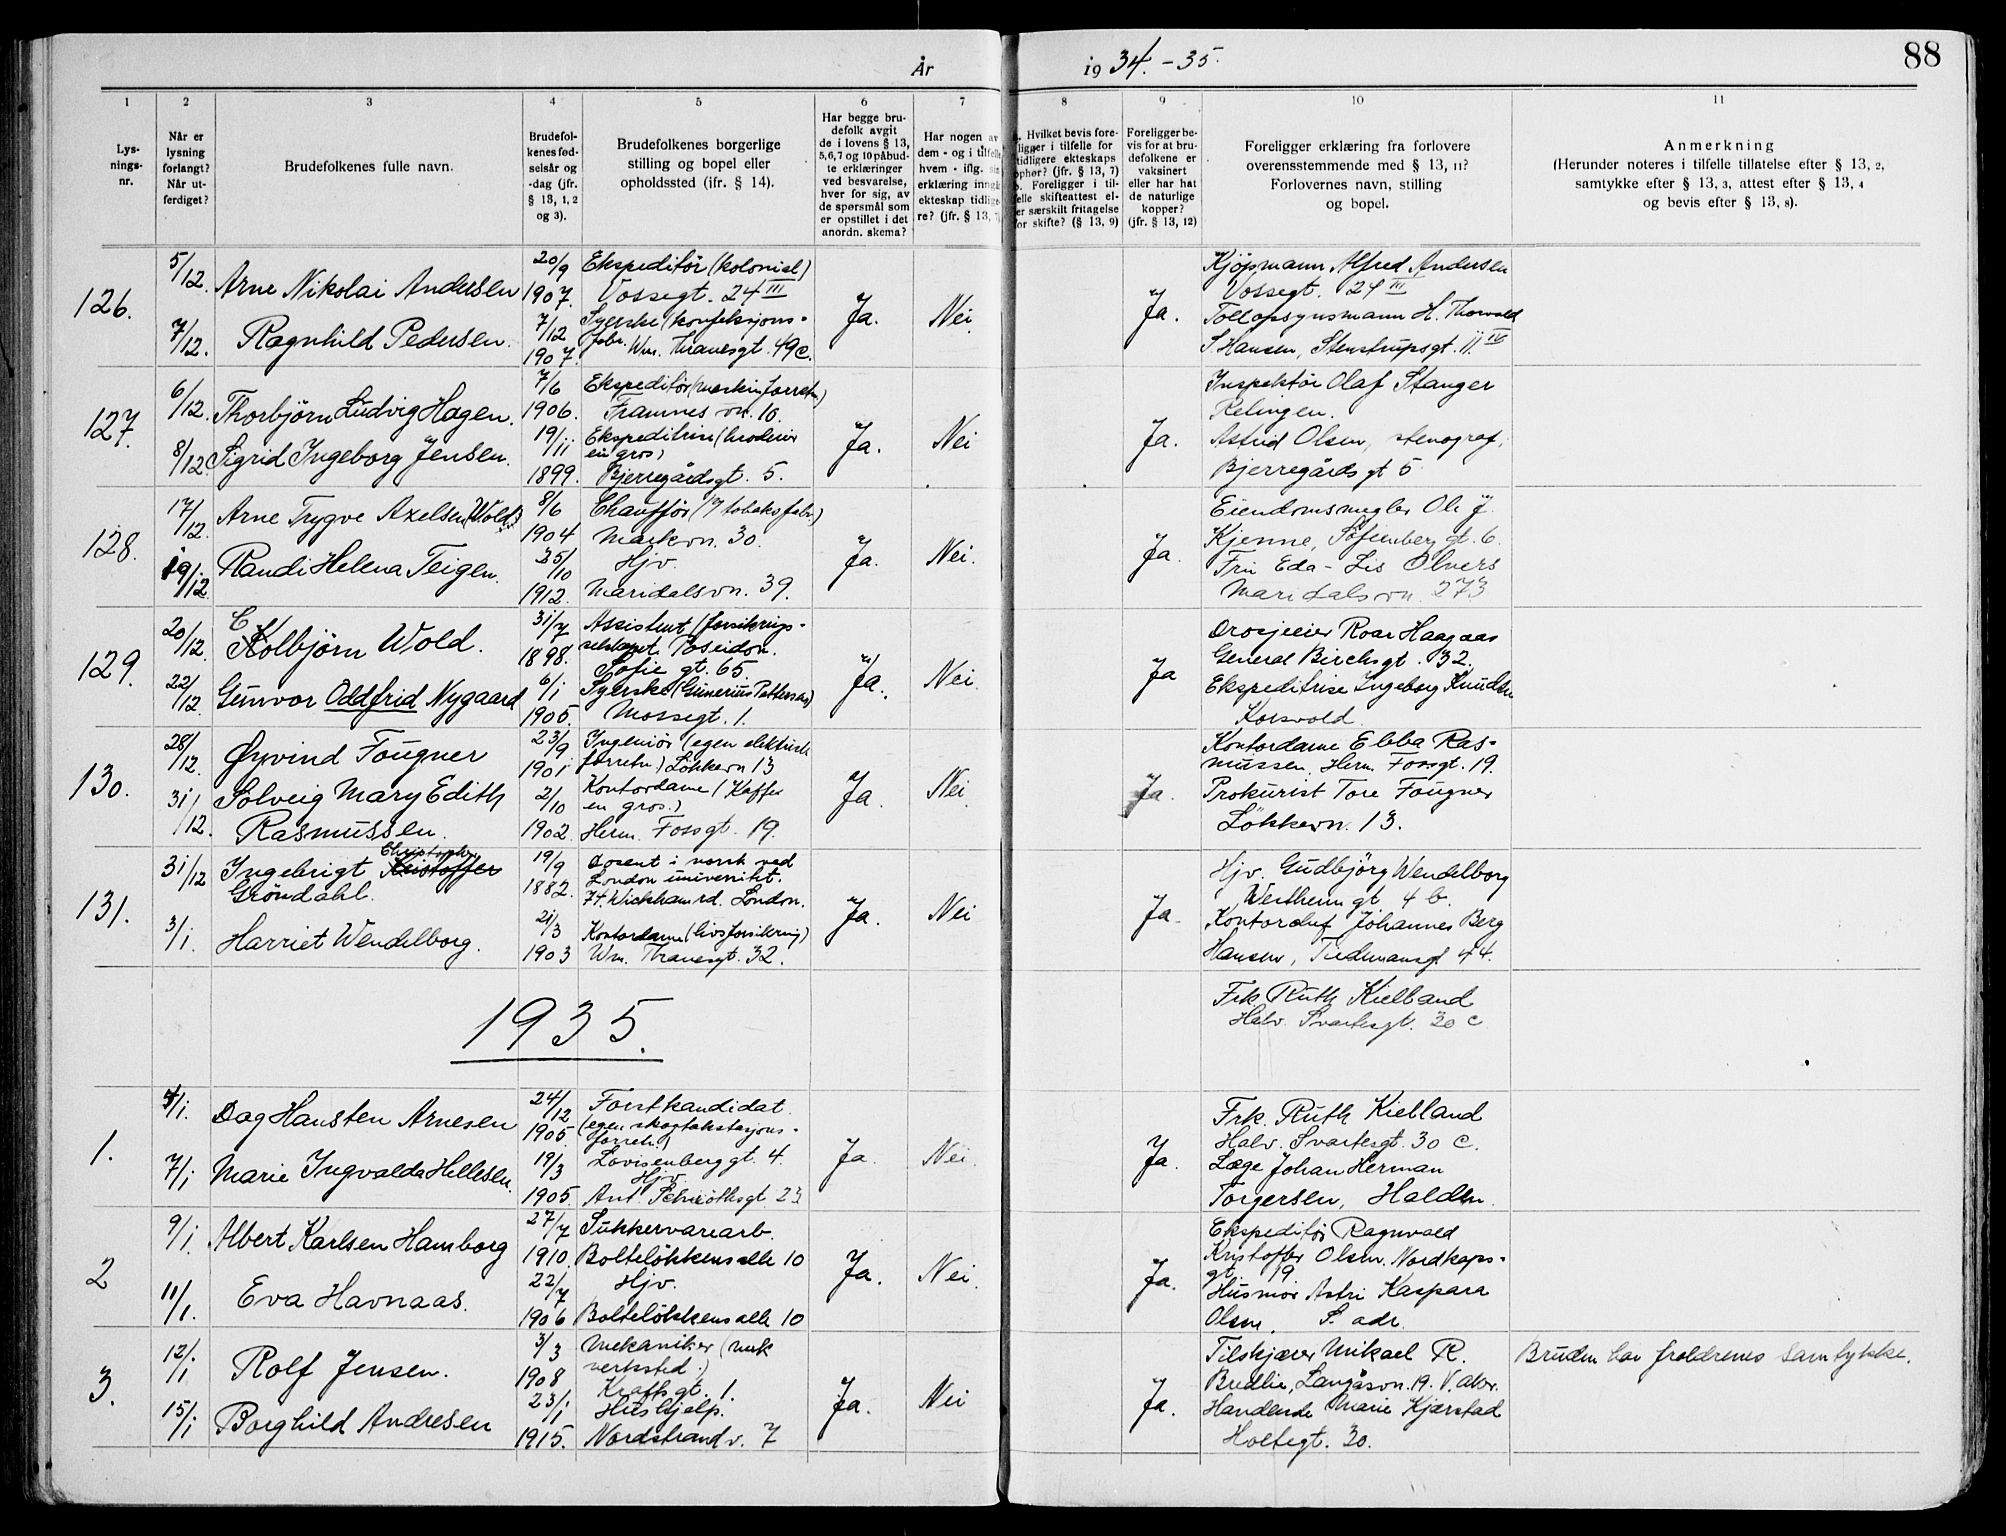 År 1934.-35.
88
1
2
3
4
5
6
7
8
9
10
11
Lys-
nings-
nr.
Når er
lysning
forlangt?
Når ut-
ferdiget?
Brudefolkenes fulle navn.
Brudefol-
kenes fød-
selsår og
-dag (jfr.
§ 13, 1, 2
og 3).
Brudefolkenes borgerlige
stilling og bopel eller
opholdssted (ifr. § 14).
Har begge bru-
defolk avgit
de i lovens § 13,
5,6,7 og 10 påbud-
te erklæringer
ved besvarelse,
hver for sig, av
de spørsmål som
er opstillet i det
anordn. skema?
Har nogen av
dem - og i tilfelle
hvem - iflg. sin
erklæring inngå
ekteskap tidlige-
re? (jfr. § 13, 7)
a. Hvilket bevis fore-
ligger i tilfelle for
tidligere ekteskaps
ophør? (jfr. § 13, 7)
b. Foreligger i til-
felle skifteattest el-
ler særskilt fritagelse
for skifte? (§ 13, 9)
Foreligger be-
vis for at bru-
defolkene er
vaksinert
eller har hat
de naturlige
kopper?
(jfr. § 13, 12)
Foreligger erklæring fra forlovere
overensstemmende med § 13, 11?
Forlovernes navn, stilling
og bopel.
Anmerkning
(Herunder noteres i tilfelle tillatelse efter § 13, 2,
samtykke efter § 13, 3, attest efter § 13, 4
og bevis efter § 13, 8).
126.
5/12.
7/12.
Arne Nikolai Andersen
Ragnhild Pedersen.
20/9
1907.
7/12
1907.
Ekspeditör (kolonial)
Vossegt. 24 III
Syerske (konfeksjons-
fabr. Wm. Thranesgt. 49c.
Ja.
Nei
Ja.
Kjöpmann Alfred Andersen
Vossegt. 24 III
Tollopsynsmann H. Thorvald
S Hansen, Stenstrupsgt. 11. IV
127.
6/12.
8/12
Thorbjörn Ludvig Hagen.
Sigrid Ingeborg Jensen.
7/6
1906.
19/11
1899.
Ekspeditör (maskinforretn)
Framnes vn. 10.
Ekspeditrise (broderier
en gros)
Bjerregårdsgt. 5.
Ja.
Nei
Ja.
Inspektör Olaf Stanger
Relingen.
Astrid Olsen, stenograf,
Bjerregårds gt 5
128.
17/12.
19/12
Arne Trygve Axelsen (Wold)
Randi Helena Teigen.
8/6
1904
25/10
1912.
Chaufför (tobaksfabr.)
Markvn. 30.
Hjv.
Maridalsvn. 39.
Ja.
Nei.
Ja
Eiendomsmegler Ole J.
Kjenne, Sofienberg gt. 6.
Fru Eda-Lis Olvers
Maridalsvn. 273
129.
20/12.
22/12.
C
Kolbjörn Wold.
Gunvor Oddfrid Nygaard
31/7
1898.
6/1
1905.
Assistent (forsikrings-
selskapet Poseidon.
Sofie gt. 65.
Syerske (Gunerius Pettersen)
Mossegt. 1.
Ja.
Nei.
Ja
Drosjeeier Roar Haagaas
General Birchsgt. 32.
Ekspeditrise Ingeborg Knudsen
Korsvold.
130.
28/12.
31/12.
Øyvind Fougner
Solveig Mary Edith
Rasmussen.
23/9
1901
2/10
1902
Ingeniör (egen elektrisk
forretn.) Lökkevn 13
Kontordame (Kaffe
en gros.)
Herm. Fossgt. 19.
Ja.
Nei
Ja.
Kontordame Ebba Ras-
mussen, Herm. Fossgt. 19.
Prokurist Tore Fougner
Lökkevn. 13.
131.
31/12
3/1.
Christopher
Ingebrigt Kristoffer
Gröndahl.
Harriet Wendelborg.
19/9
1882.
21/3
1903
Dosent i norsk ved
London universitet.
74. Wickham rd. London.
Kontordame (livsforsikring)
Wm. Thranesgt. 32.
Ja.
Nei
Ja.
Hjv. Gudbjörg Wendelborg
Wertheim gt 4 b.
Kontorchef Johannes Berg
Hansen, Tidemansgt 44.
Frk. Ruth Kielland
Halv. Svartesgt. 30 c
1935.
1.
4/1.
7/1
Dag Hansten Arnesen
Marie Ingvalda Hellesen.
24/12
1905.
19/3
1905.
Forstkandidat.
(egen skogtakstasjons-
forretn.)
Lovisenberggt. 4.
Hjv.
Ant. Schiöthsgt. 23
Ja.
Nei.
Ja.
Frk. Ruth Kielland
Halv. Svartesgt. 30 c.
Læge Johan Herman
Torgersen, Halden.
2
9/1.
11/1.
Albert Karlsen Hamborg
Eva Havnaas.
27/7
1910.
22/7
1906
Sukkervarearb.
Bolteløkkens alle 10
Hjv.
Bolteløkkens alle 10
Ja.
Nei.
Ja.
Ekspeditör Ragnvald
Kristoffer Olsen. Nordkaps-
gt. 19
Husmor Astri Kaspara
Olsen. S. adr.
3.
12/1
15/1
Rolf Jensen.
Borghild Andresen
3/3
1908
23/1
1915.
Mekaniker (mek
verksted.)
Krafts gt. 1.
Hushjelp.
Nordstrandv. 7
Ja.
Nei
Ja.
Tilskjærer Mikael R.
Bredlie, Langåsvn. 19. V. Aker.
Handlende Marie Kjærstad
Holtegt. 30.
Bruden har foreldrenes samtykke.